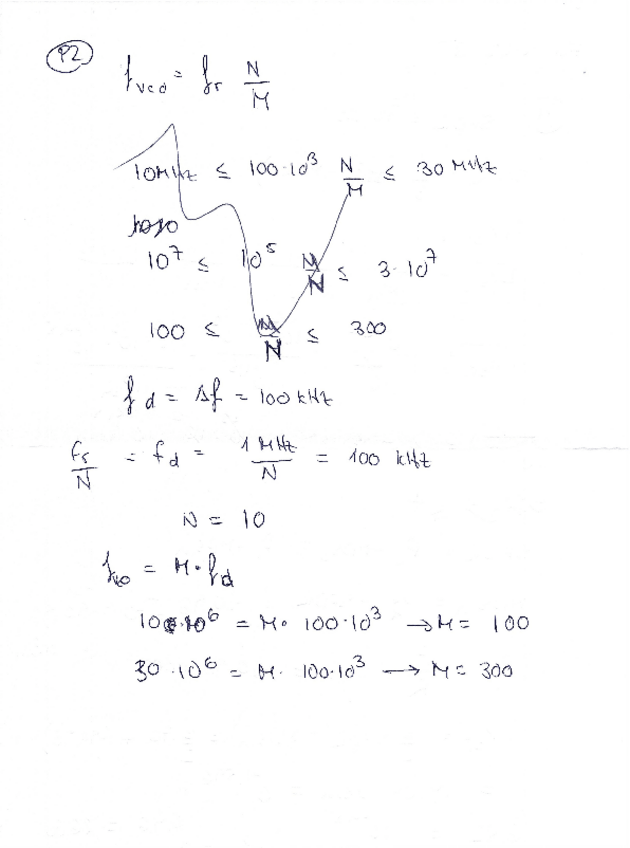 P2
fvco = fr N/M
10MHz ≤ 100·10³ N/M ≤ 30 MHz
10⁷ ≤ 10⁵ M/N ≤ 3·10⁷
100 ≤ M/N ≤ 300
fd = Δf = 100 kHz
fr/N = fd = 1 MHz/N = 100 kHz
N = 10
fvo = M·fd
10·10⁶ = M· 100·10³ → M = 100
30·10⁶ = M· 100·10³ → M = 300